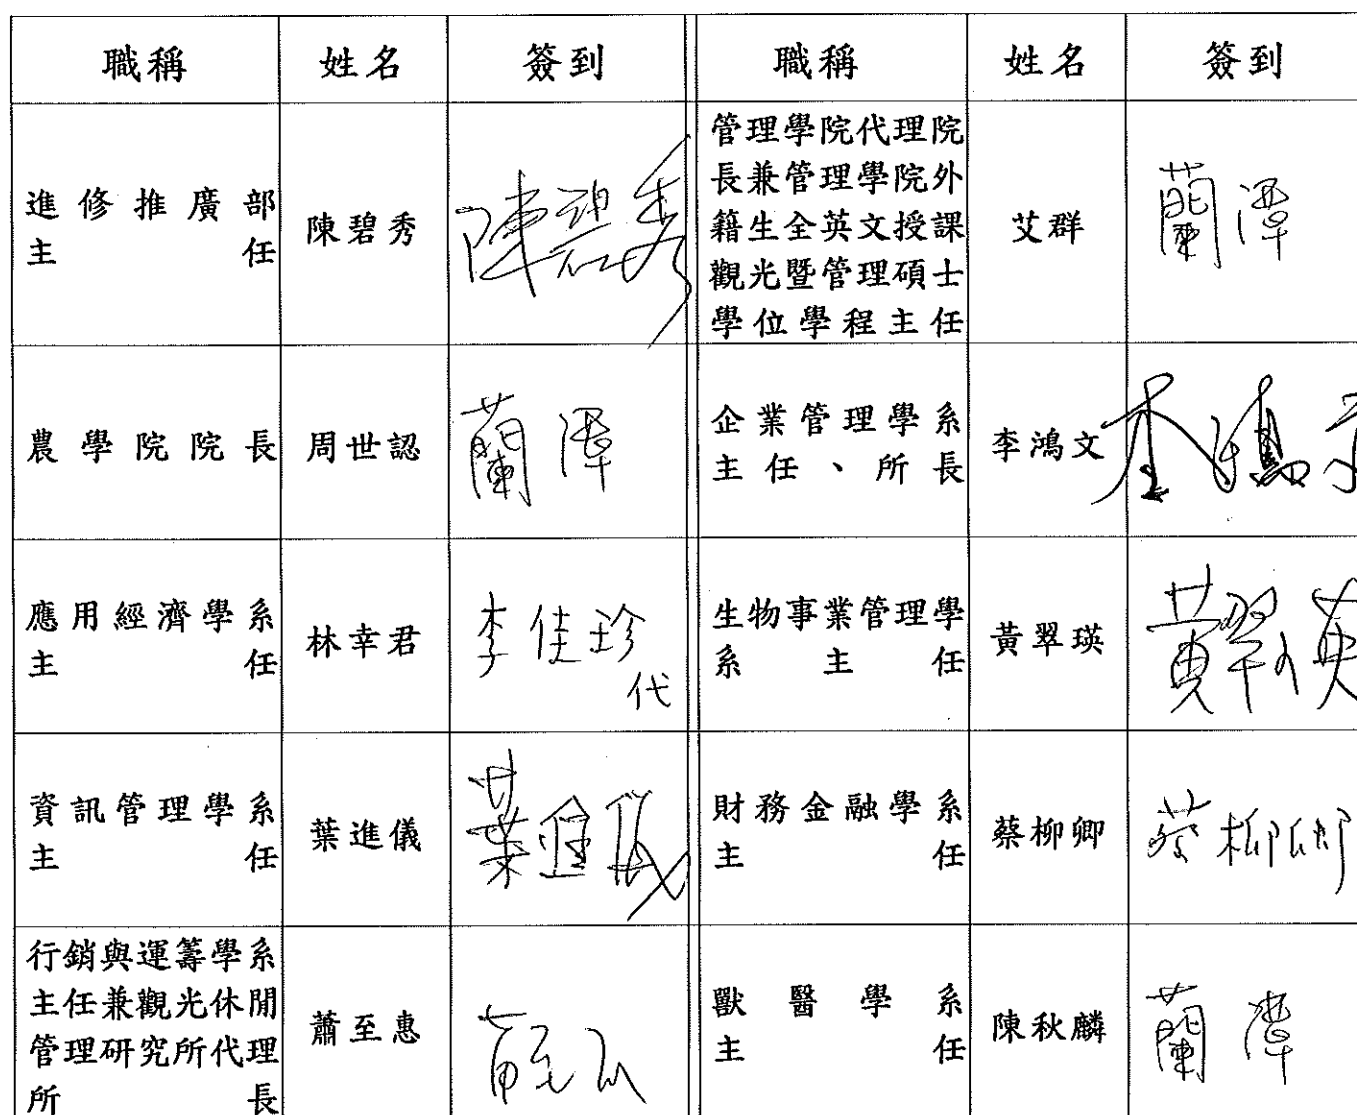 職稱 姓名 簽到 職稱 姓名 簽到
進修推廣部
主任
陳碧秀
陳碧秀
管理學院代理院
長兼管理學院外
籍生全英文授課
觀光暨管理碩士
學位學程主任
艾群
蘭潭
農學院院長
周世認
蘭潭
企業管理學系
主任、所長
李鴻文
李鴻文
應用經濟學系
主任
林幸君
李佳珍
代
生物事業管理學
系主任
黃翠瑛
黃翠瑛
資訊管理學系
主任
葉進儀
葉進儀
財務金融學系
主任
蔡柳卿
蔡柳卿
行銷與運籌學系
主任兼觀光休閒
管理研究所代理
所長
蕭至惠
獸醫學系
主任
陳秋麟
蘭潭